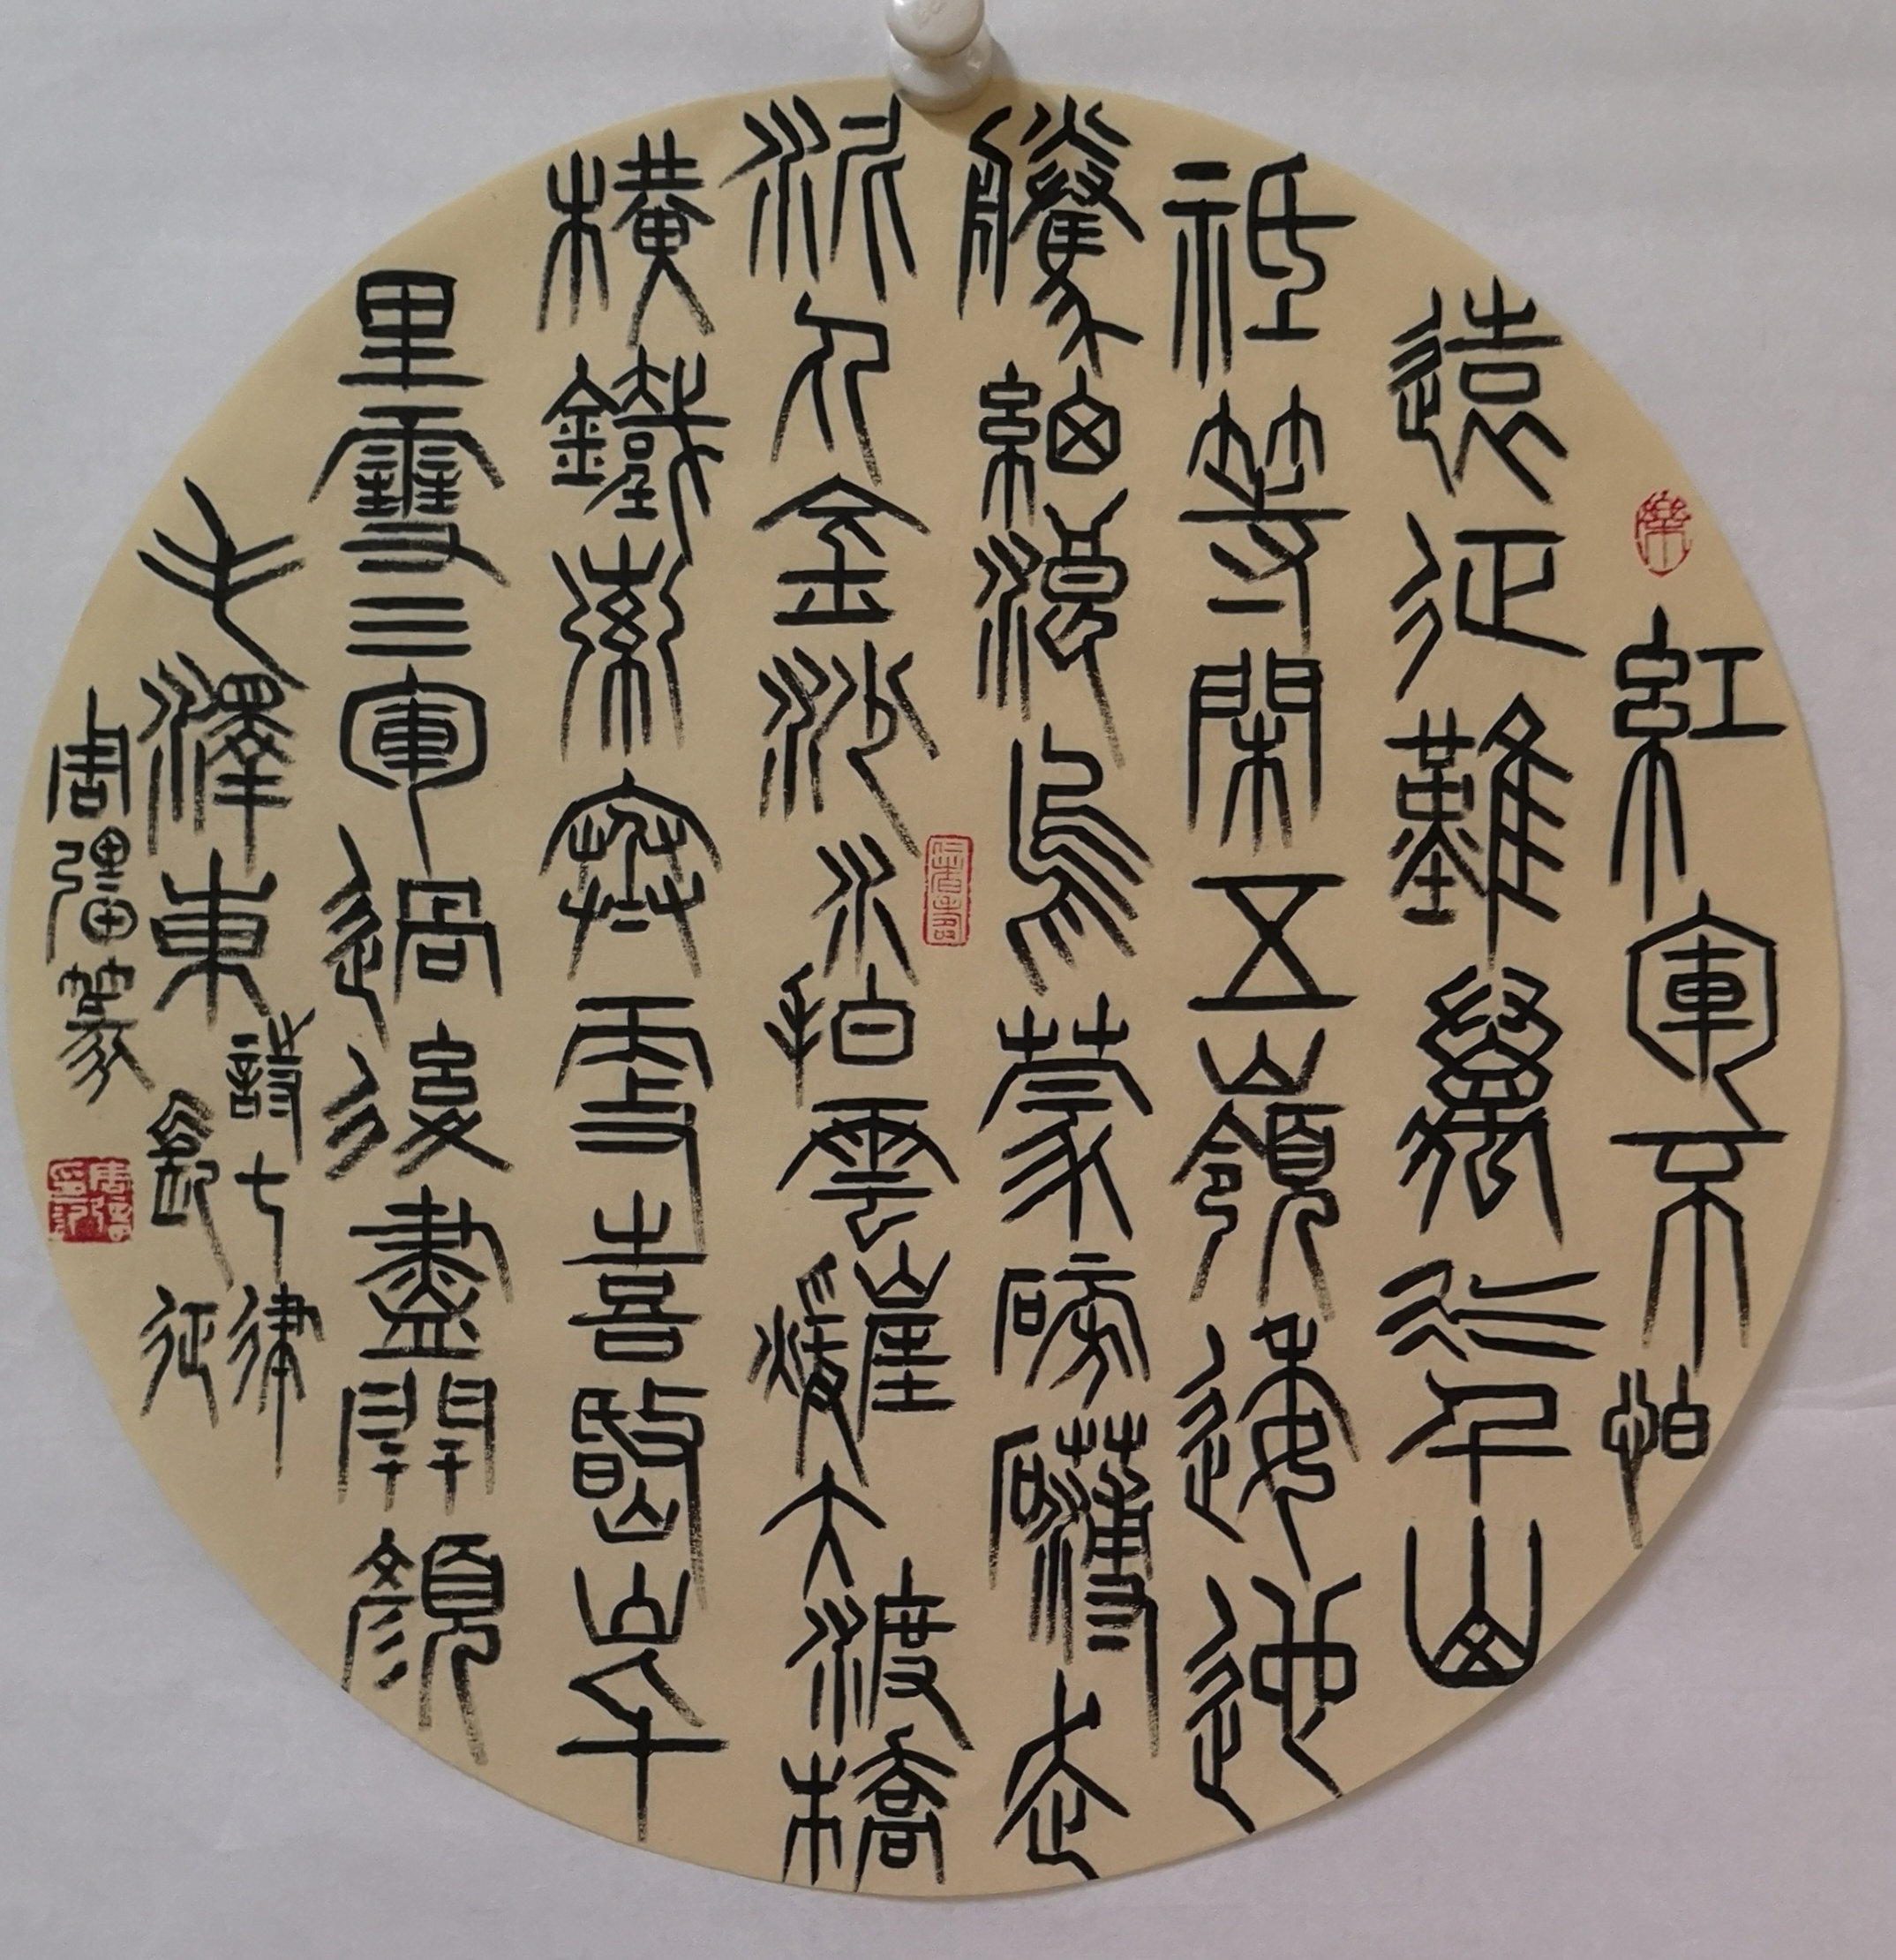 紅軍不怕
遠征難萬水千山
祗等閑五嶺逶迤
騰細浪烏蒙磅礴走
泥丸金沙水拍雲崖暖大渡橋
橫鐵索寒更喜岷山千
里雪三軍過後盡開顏
毛澤東
詩七律
長征
周彊篆